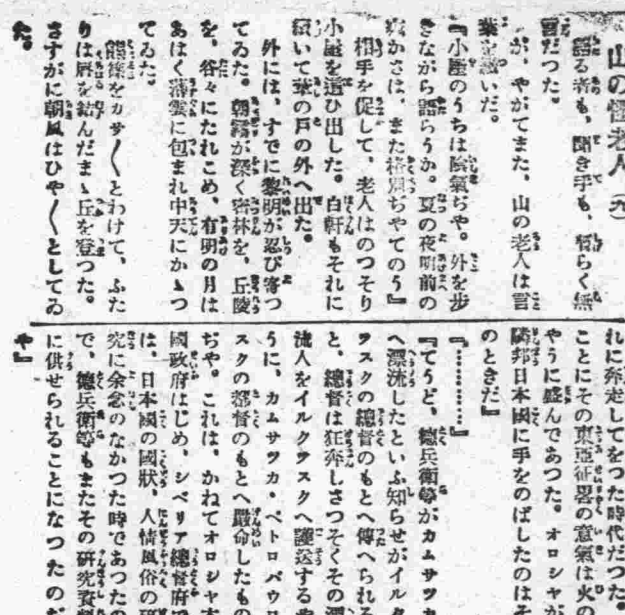 山の怪老人（六）
語る者も、聞き手も、暫らく無
言だつた。
が、やがてまた、山の老人は言
葉を継いだ。
『小屋のうちは陰氣ぢや。外を歩
きながら語らうか。夏の夜明前の
かさは、また格別ぢやてのう』
相手を促して、老人はのつそり
小屋を這ひ出した。白軒もそれに
續いて草の戸の外へ出た。
外には、すでに黎明が忍び寄つ
てゐた。朝霧が深く密林を、丘陵
を、谷々にたれこめ、有明の月は
あはく薄雲に包まれ中天にかゝつ
てゐた。
熊篠をカサ〳〵とわけて、ふた
りは唇を結んだまゝ丘を登つた。
さすがに朝風はひや〳〵としてゐ
た。
れに奔走してをつた時代だつた
ことにその東亞征畧の意氣は火の
やうに盛んであつた。オロシヤが
隣邦日本國に手をのばしたのはそ
のときだ』
『………』
『てうど、德兵衛等がカムサツカ
へ漂流したといふ知らせがイルク
ヲスクの總督のもとへ傳へられる
と、總督は狂奔しさつそくその漂
流人をイルクヲスクへ護送するや
うに、カムサツカ・ペトロパウロ
スクの都督のもとへ嚴命したもの
ぢや。これは、かねてオロシヤ本
國政府はじめ、シベリア總督府で
は、日本國の國狀、人情風俗の研
究に余念のなかつた時であつたの
で、德兵衛等もまたその研究資料
に供せられることになつたのぢ
や』